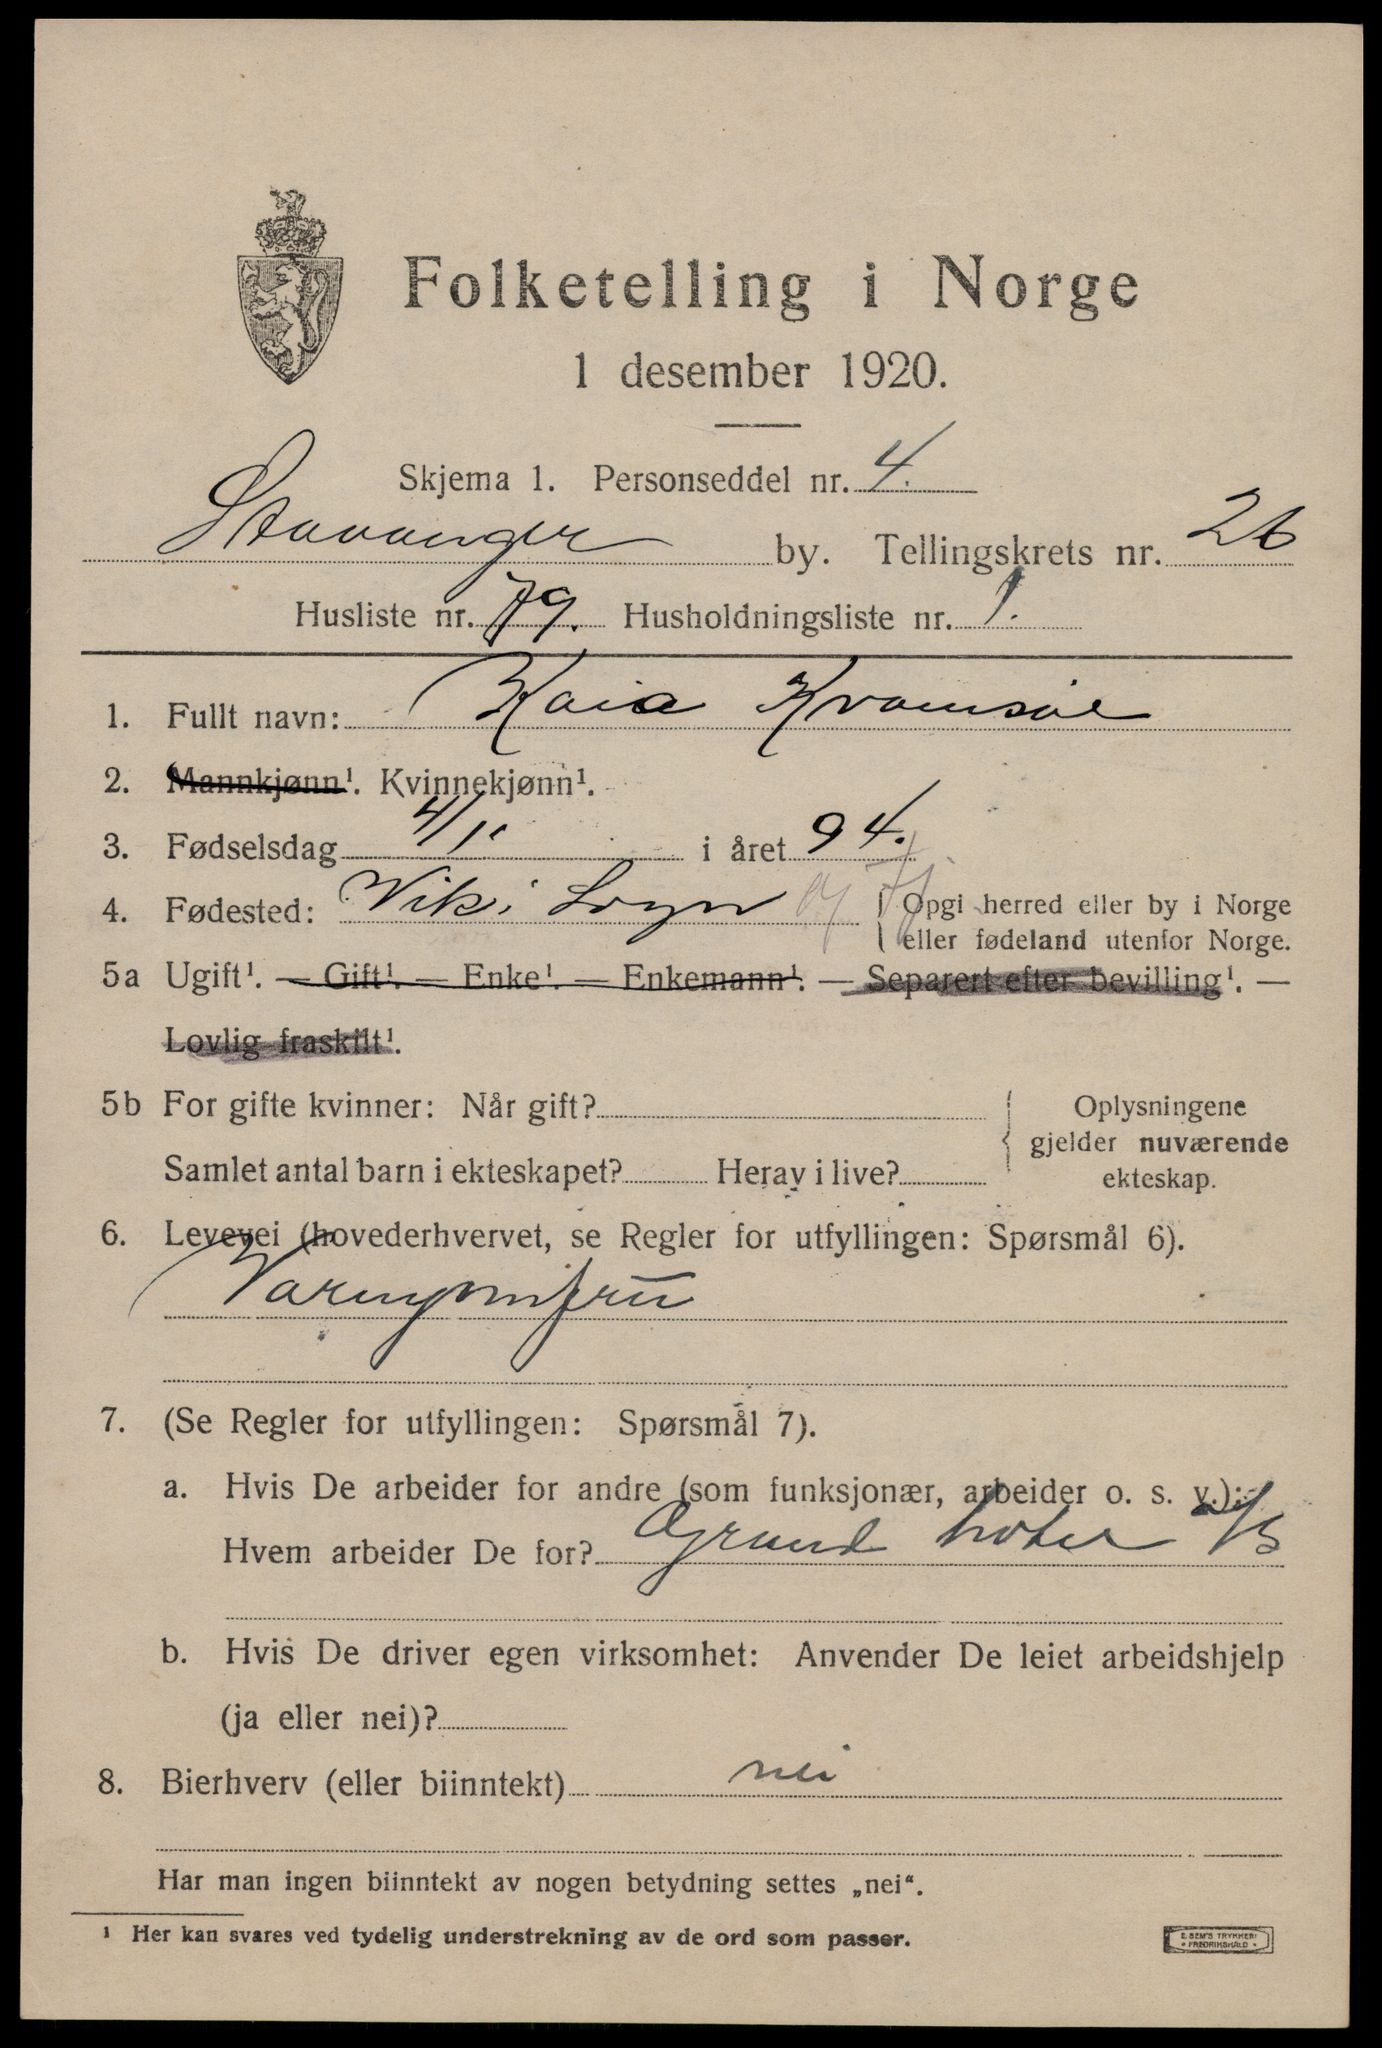 Folketelling i Norge
1 desember 1920.
Skjema 1. Personseddel nr. 4.
Stavanger by. Tellingskrets nr. 26
Husliste nr. 79. Husholdningsliste nr. 1.
1. Fullt navn: Kaia Kvamsøe
2. Mannkjønn¹. Kvinnekjønn¹.
3. Fødselsdag 4/1 i året 94.
4. Fødested: Vik i Sogn { Opgi herred eller by i Norge
eller fødeland utenfor Norge.
5a Ugift¹. — Gift¹. — Enke¹. — Enkemann¹. — Separert efter bevilling¹. —
Lovlig fraskilt¹.
5b For gifte kvinner: Når gift? { Oplysningene
gjelder nuværende
Samlet antal barn i ekteskapet? Herav i live?
ekteskap.
6. Levevei (hovederhvervet, se Regler for utfyllingen: Spørsmål 6).
Varmjomfru
7. (Se Regler for utfyllingen: Spørsmål 7).
a. Hvis De arbeider for andre (som funksjonær, arbeider o. s. v.):
Hvem arbeider De for? Grand hotel A/S
b. Hvis De driver egen virksomhet: Anvender De leiet arbeidshjelp
(ja eller nei)?
8. Bierhverv (eller biinntekt) nei
Har man ingen biinntekt av nogen betydning settes „nei“.
¹ Her kan svares ved tydelig understrekning av de ord som passer.
E. SEM'S TRYKKERI
• FREDRIKSHALD •